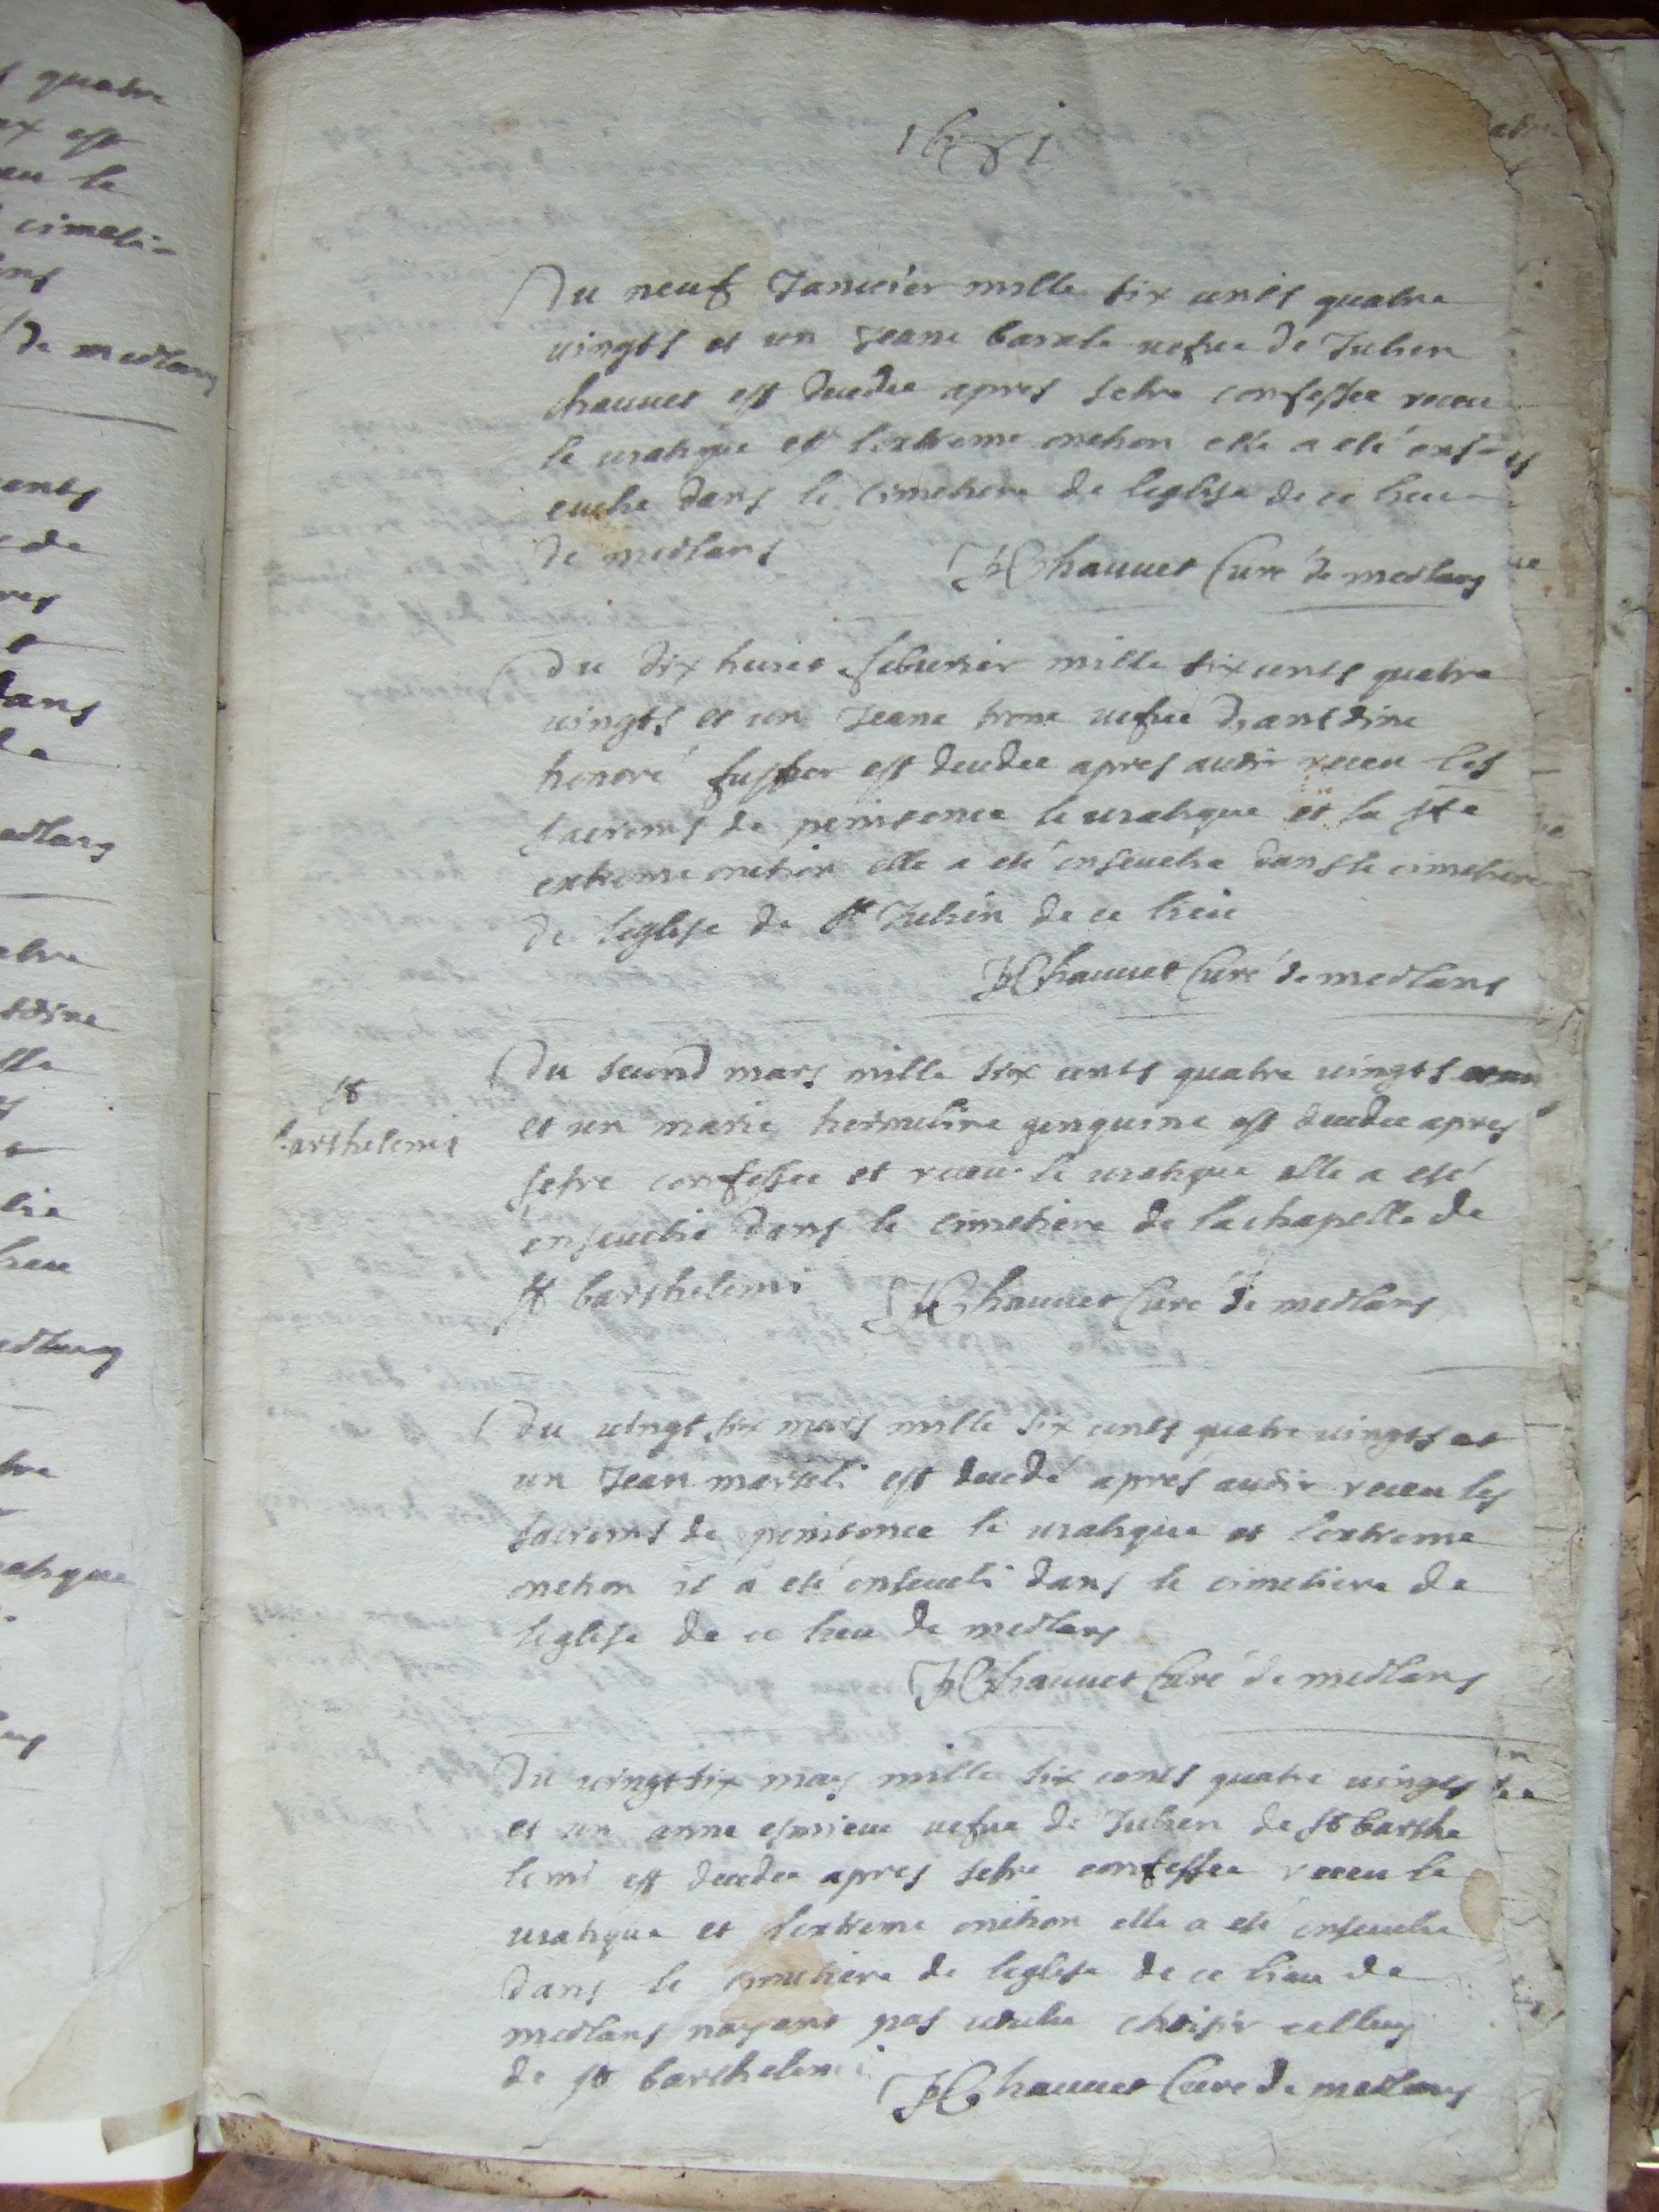 1681
Du neuf Januier mille six cents quatre
uingts et un Jeane uefue de Julien
chauuet est decedee apres setre confessee receu
le uiatique et lextreme onction elle a eté ens-
euelie dans le cimetiere de leglise de ce lieu
de meolans
JChauuet Curé de meolans
Du dix huict feburier mille six cents quatre
uingts et un Jeane trone uefue dantoine
honoré est decedee apres auoir receu les
sacrems de penitence le uiatique et la ste
extreme onction elle a eté enseuelie dans le cimetiere
de leglise de st Julien de ce lieu
JChauuet Curé de meolans
Du second mars mille six cents quatre uingts
st
barthelemi
et un marie hermeline est decedee apres
setre confessee et receu le uiatique elle a eté
enseuelie dans le cimetiere de la chapelle de
st barthelemi
JChauuet Curé de meolans
Du uingt six mars mille six cents quatre uingts et
un Jean marteli est decedé apres auoir receu les
sacrems de penitence le uiatique et lextreme
onction il a eté enseueli dans le cimetiere de
leglise de ce lieu de meolans
JChauuet Curé de meolans
Du uingt six may mille six cents quatre uingts
et un anne uefue de Julien de st barthe
lemi est decedee apres setre confessee receu le
uiatique et lextreme onction elle a eté enseuelie
dans le cimetiere de leglise de ce lieu de
meolans nayant pas uoulu choisir celluy
de st barthelemi
JChauuet Curé de meolans